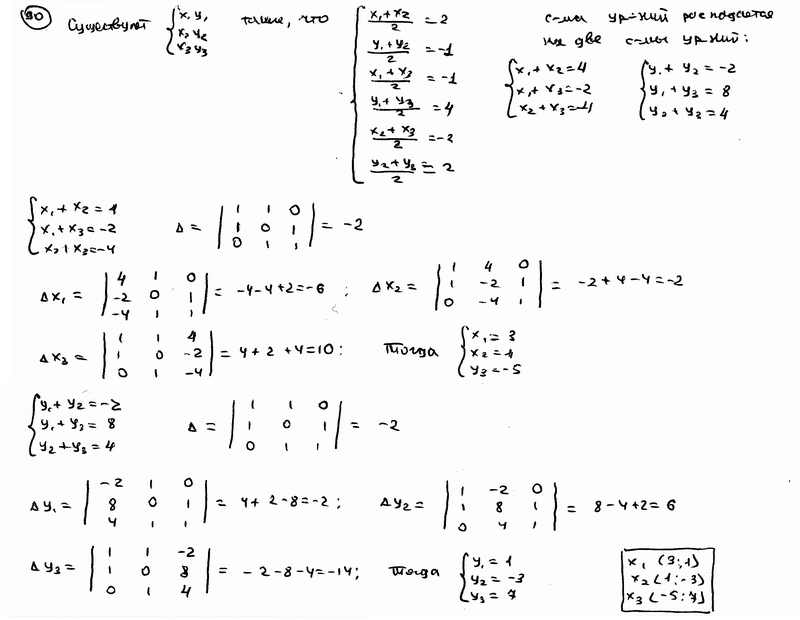 90 Существуют { x₁ y₁ x₂ y₂ x₃ y₃ такие, что
{ (x₁+x₂)/2 = 2
(y₁+y₂)/2 = -1
(x₁+x₃)/2 = -1
(y₁+y₃)/2 = 4
(x₂+x₃)/2 = -2
(y₂+y₃)/2 = 2
с-ма ур-ний распадается
на две с-мы ур-ний:
{ x₁+x₂=4
x₁+x₃=-2
x₂+x₃=-4
{ y₁+y₂=-2
y₁+y₃=8
y₂+y₃=4
{ x₁+x₂=4
x₁+x₃=-2
x₂+x₃=-4
Δ = | 1 1 0
1 0 1
0 1 1 | = -2
Δx₁ = | 4 1 0
-2 0 1
-4 1 1 | = -4-4+2=-6 ;
Δx₂ = | 1 4 0
1 -2 1
0 -4 1 | = -2+4-4=-2
Δx₃ = | 1 1 4
1 0 -2
0 1 -4 | = 4+2+4=10 ;
Тогда { x₁=3
x₂=1
y₃=-5
{ y₁+y₂=-2
y₁+y₃=8
y₂+y₃=4
Δ = | 1 1 0
1 0 1
0 1 1 | = -2
Δy₁ = | -2 1 0
8 0 1
4 1 1 | = 4+2-8=-2 ;
Δy₂ = | 1 -2 0
1 8 1
0 4 1 | = 8-4+2=6
Δy₃ = | 1 1 -2
1 0 8
0 1 4 | = -2-8-4=-14 ;
Тогда { y₁=1
y₂=-3
y₃=7
x₁ (3;1)
x₂ (1;-3)
x₃ (-5;7)